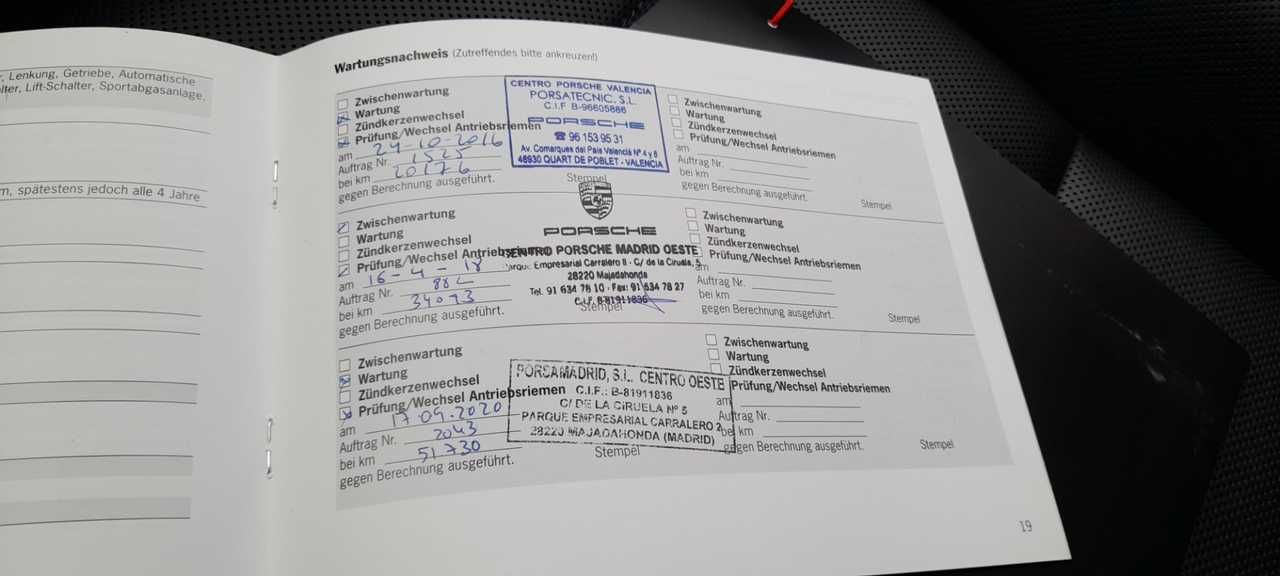 r, Lenkung, Getriebe, Automatische
lter, Lift-Schalter, Sportabgasanlage,
m, spätestens jedoch alle 4 Jahre
Wartungsnachweis (Zutreffendes bitte ankreuzen!)
Zwischenwartung
Wartung
Zündkerzenwechsel
Prüfung/Wechsel Antriebsriemen
am 24-10-2016
Auftrag Nr. 1525
bei km 20176
gegen Berechnung ausgeführt.
CENTRO PORSCHE VALENCIA
PORSATECNIC, S.L.
C.I.F B-96605886
PORSCHE
☎ 96 153 95 31
Av. Comarques del Pais Valencià Nº 4 y 6
46930 QUART DE POBLET - VALENCIA
Stempel
Zwischenwartung
Wartung
Zündkerzenwechsel
Prüfung/Wechsel Antriebsriemen
am
Auftrag Nr.
bei km
gegen Berechnung ausgeführt.
Stempel
Zwischenwartung
Wartung
Zündkerzenwechsel
Prüfung/Wechsel
am 16-4-18
Auftrag Nr.
bei km 34073
gegen Berechnung ausgeführt.
PORSCHE
CENTRO PORSCHE MADRID OESTE
Parque Empresarial Carralero II - C/ de la Ciruela, 5
28220 Majadahonda
Tel. 91 634 78 10 - Fax: 91 634 78 27
C.I.F. B-81911836
Stempel
Zwischenwartung
Wartung
Zündkerzenwechsel
Prüfung/Wechsel Antriebsriemen
am
Auftrag Nr.
bei km
gegen Berechnung ausgeführt.
Stempel
Zwischenwartung
Wartung
Zündkerzenwechsel
Prüfung/Wechsel Antriebsriemen
am 17.09.2020
Auftrag Nr. 2043
bei km 51730
gegen Berechnung ausgeführt.
PORSAMADRID, S.L. CENTRO OESTE
C.I.F.: B-81911836
C/ DE LA CIRUELA Nº 5
PARQUE EMPRESARIAL CARRALERO 2
28220 MAJADAHONDA (MADRID)
Stempel
Zwischenwartung
Wartung
Zündkerzenwechsel
Prüfung/Wechsel Antriebsriemen
am
Auftrag Nr.
bei km
gegen Berechnung ausgeführt.
Stempel
19